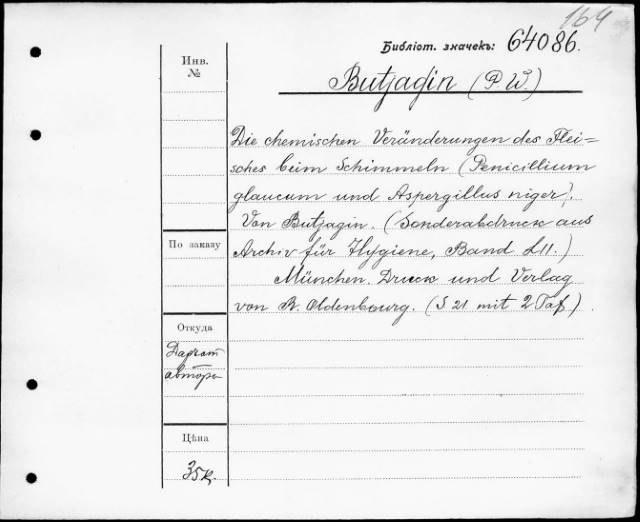 164
Библіот. значекъ: 64086.
Инв.
№
Butjagin (P. W.)
Die chemischen Veränderungen des Flei=
sches beim Schimmeln (Penicillium
glaucum und Aspergillus niger).
Von Butjagin. (Sonderabdruck aus
Archiv für Hygiene, Band LII.)
München. Druck und Verlag
von R. Oldenbourg. (S 21 mit 2 Taf.)
По заказу
Откуда
автора
Цѣна
35 к.